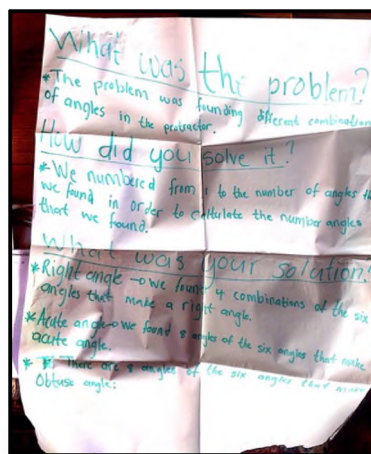 What was the problem?
*The problem was founding different combination
of angles in the protractor.
How did you solve it?
*We numbered from 1 to the number of angles th
we found in order to the number angles
that we found.
What was your solution?
*Right angle → we found 4 combinations of the six
angles that make a right angle.
*Acute angle → we found 8 angles of the six angles that make
acute angle.
* There are 8 angles of the six angles that
Obtuse angle: